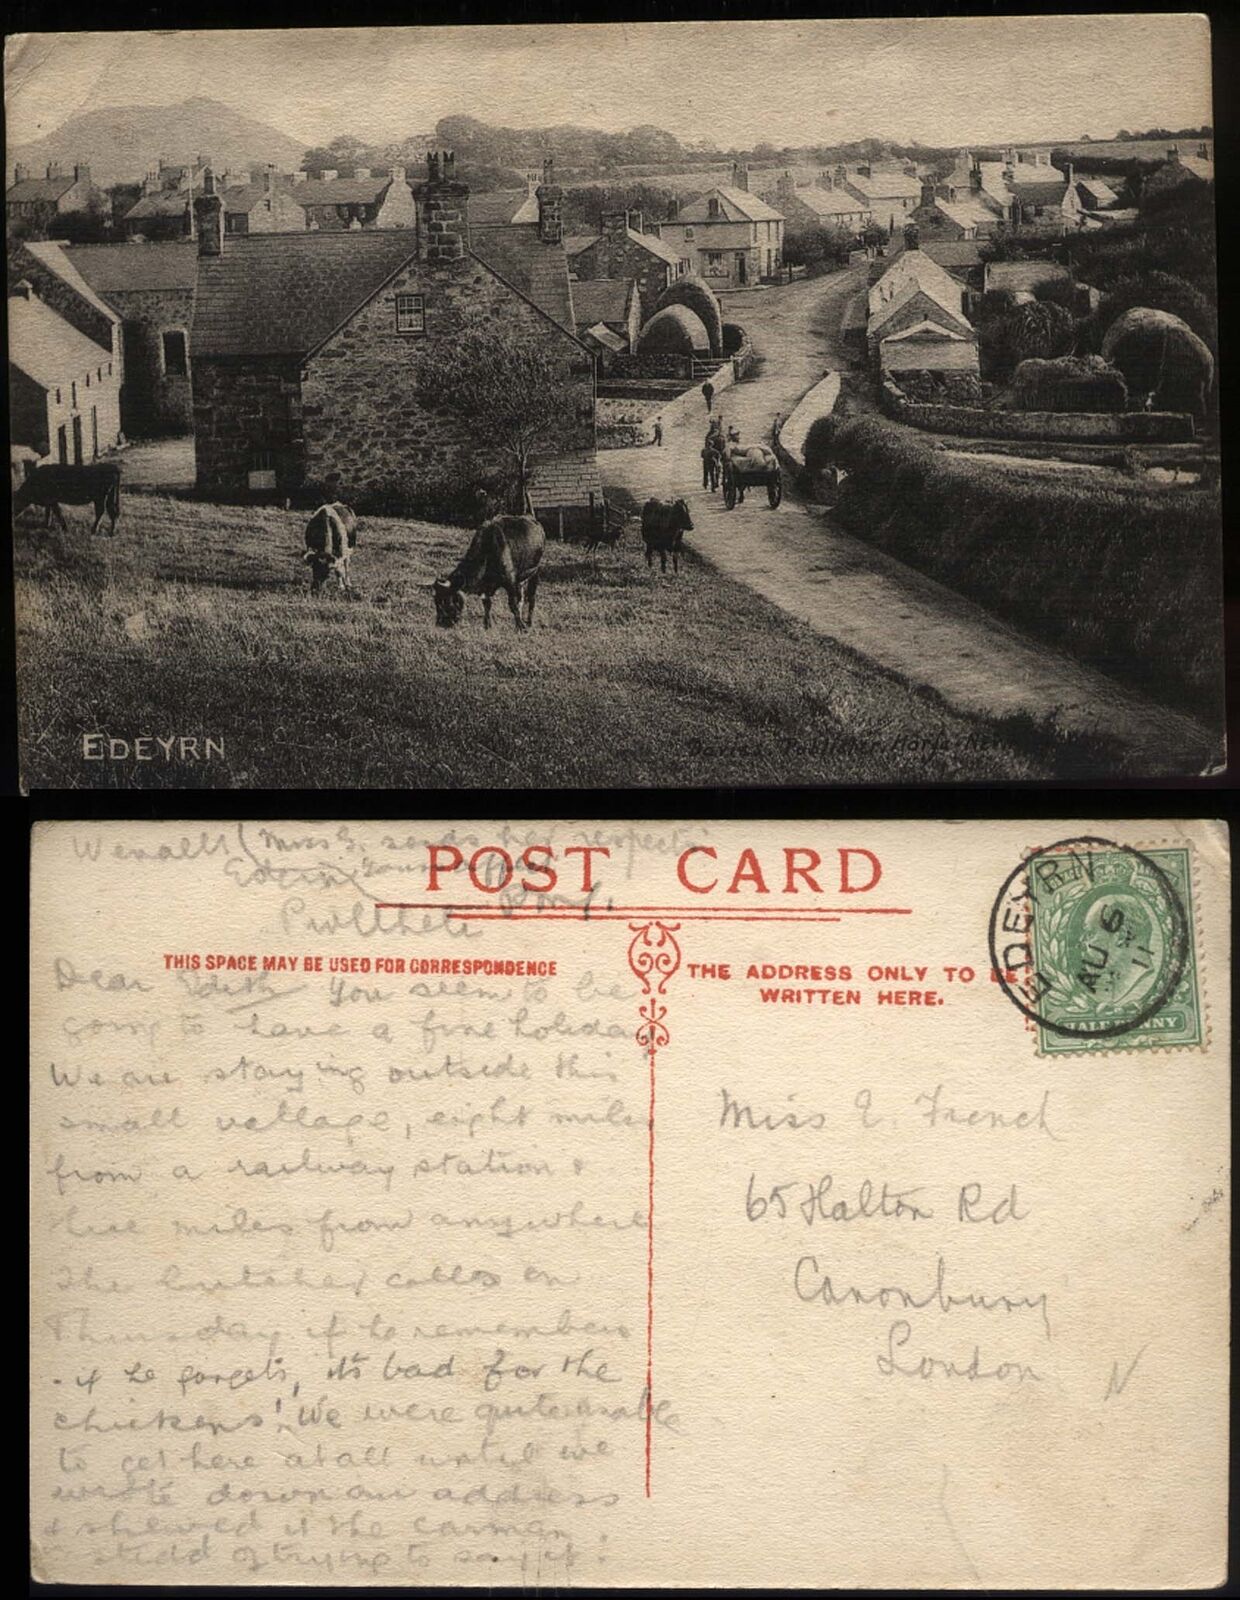 EDEYRN
Davies, Publisher,
(Miss G. sends her respects
Pwllheli
POST CARD
THIS SPACE MAY BE USED FOR CORRESPONDENCE
THE ADDRESS ONLY TO BE
WRITTEN HERE.
EDEYRN
AU 6
11
HALFPENNY
Dear Edith You seem to be
going to have a fine holiday
We are staying outside this
small vallage, eight miles
from a railway station &
five miles from anywhere
The butcher calls on
Thursday if he remembers
- if he forgets, it's bad for the
chickens! We were quite unable
to get here at all until we
wrote down our address
& shewed it the carman
stedd of trying to say it!
Miss E. French
65 Halton Rd
Canonbury
London N